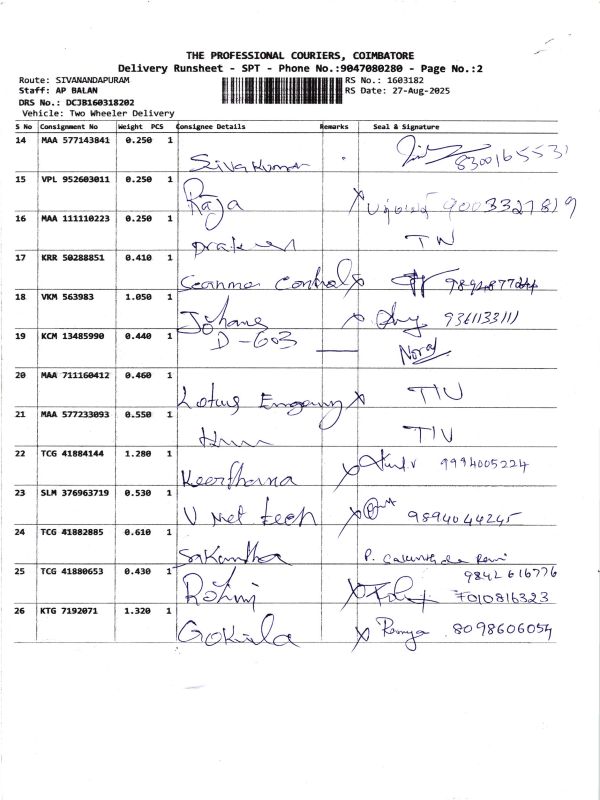 THE PROFESSIONAL COURIERS, COIMBATORE
Delivery Runsheet - SPT - Phone No.:9047080280 - Page No.:2
Route: SIVANANDAPURAM RS No.: 1603182
Staff: AP BALAN RS Date: 27-Aug-2025
DRS No.: DCJB160318202
Vehicle: Two Wheeler Delivery
S No Consignment No Weight PCS Consignee Details Remarks Seal & Signature
14 MAA 577143841 0.250 1
Sivakumar 8300165531
15 VPL 952603011 0.250 1
Raja 9003327819
16 MAA 111110223 0.250 1
TW
17 KRR 50288851 0.410 1
Control
18 VKM 563983 1.050 1
Johans 9361133111
19 KCM 13485990 0.440 1
D-603
20 MAA 711160412 0.460 1
Lotus
21 MAA 577233093 0.550 1
22 TCG 41884144 1.280 1
Keerthana 9994005224
23 SLM 376963719 0.530 1
V Net tech 9894044245
24 TCG 41882885 0.610 1
P.
25 TCG 41880653 0.430 1 9842616776
Rohini 7010816323
26 KTG 7192071 1.320 1
Gokila Ramya 8098606054